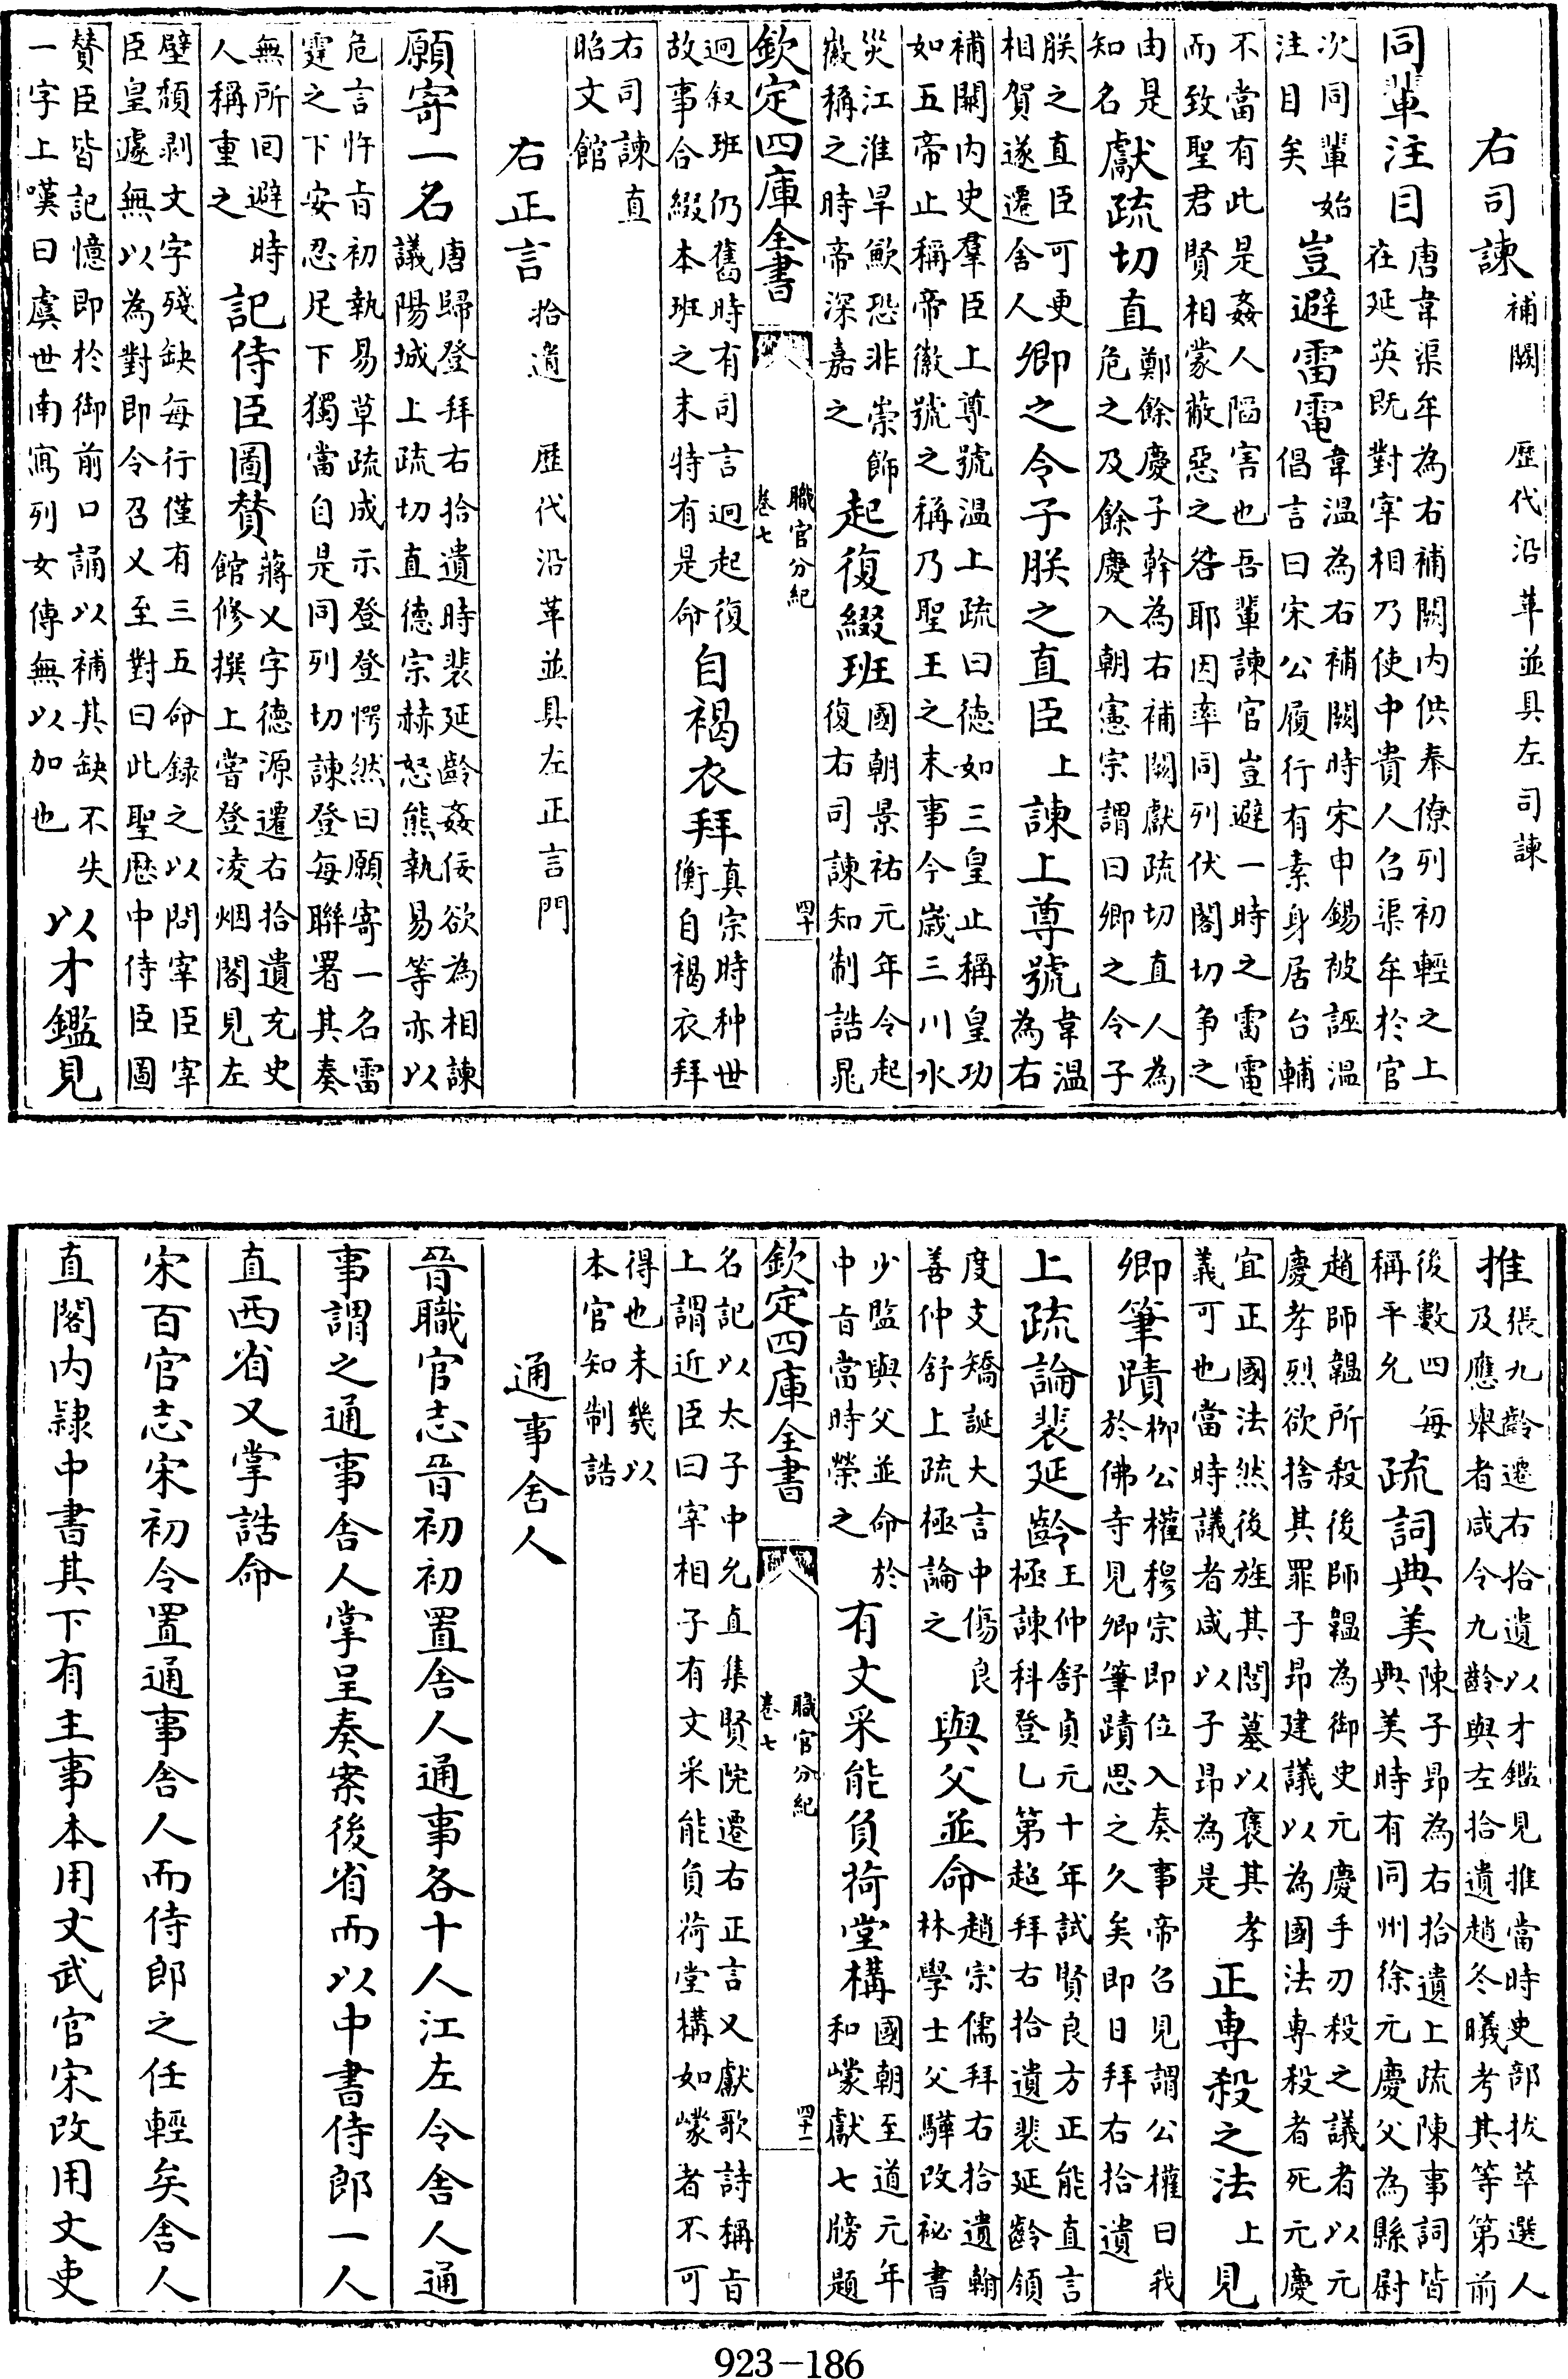 右司諫 補闕 歷代沿革並具左司諫
同輩注目 唐韋渠牟為右補闕内供奉僚列初輕之上
在延英既對宰相乃使中貴人召渠牟於官
次同輩始
注目矣 豈避雷電 韋温為右補闕時宋申錫被誣温
倡言曰宋公履行有素身居台輔
不當有此是姦人陷害也吾輩諫官豈避一時之雷電
而致聖君賢相蒙蔽惡之咎耶因率同列伏閣切争之
由是
知名 獻疏切直 鄭餘慶子幹為右補闕獻疏切直人為
危之及餘慶入朝憲宗謂曰卿之令子
朕之直臣可更
相賀遂遷舍人 卿之令子朕之直臣 上 諫上尊號 韋温
為右
補闕内史羣臣上尊號温上疏曰徳如三皇止稱皇功
如五帝止稱帝徽號之稱乃聖王之末事今歲三川水
災江淮旱歉恐非崇飾
徽稱之時帝深嘉之 起復綴班 國朝景祐元年令起
復右司諫知制誥晁
欽定四庫全書 職官分紀 卷七 四十
迥叙班仍舊時有司言迥起復
故事合綴本班之末特有是命 自褐衣拜 真宗時种世
衡自褐衣拜
右司諫直
昭文館
右正言 拾遺 歷代沿革並具左正言門
願寄一名 唐歸登拜右拾遺時裴延齡姦佞欲為相諫
議陽城上疏切直德宗赫怒熊執易等亦以
危言忤旨初執易草疏成示登登愕然曰願寄一名雷
霆之下安忍足下獨當自是同列切諫登每聯署其奏
無所回避時
人稱重之 記侍臣圖贊 蔣乂字德源遷右拾遺充史
館修撰上嘗登凌烟閣見左
壁頽剥文字殘缺每行僅有三五命録之以問宰臣宰
臣皇遽無以為對即令召乂至對曰此聖厯中侍臣圖
贊臣皆記憶即於御前口誦以補其缺不失
一字上嘆曰虞世南寫列女傳無以加也 以才鑑見
推 張九齡遷右拾遺以才鑑見推當時吏部拔萃選人
及應舉者咸令九齡與左拾遺趙冬曦考其等第前
後數四每
稱平允 疏詞典美 陳子昂為右拾遺上疏陳事詞皆
典美時有同州徐元慶父為縣尉
趙師韞所殺後師韞為御史元慶手刃殺之議者以元
慶孝烈欲捨其罪子昂建議以為國法專殺者死元慶
宜正國法然後旌其閭墓以褒其孝
義可也當時議者咸以子昂為是 正專殺之法 見上
卿筆蹟 柳公權穆宗即位入奏事帝召見謂公權曰我
於佛寺見卿筆蹟思之久矣即日拜右拾遺
上疏論裴延齡 王仲舒貞元十年試賢良方正能直言
極諫科登乙第超拜右拾遺裴延齡領
度支矯誕大言中傷良
善仲舒上疏極論之 與父並命 趙宗儒拜右拾遺翰
林學士父驊改祕書
少監與父並命於
中旨當時榮之 有文采能負荷堂構 國朝至道元年
和㠓獻七牓題
欽定四庫全書 職官分紀 卷七 四十一
名記以太子中允直集賢院遷右正言又獻歌詩稱旨
上謂近臣曰宰相子有文采能負荷堂構如㠓者不可
得也未幾以
本官知制誥
通事舍人
晉職官志晉初初置舍人通事各十人江左令舍人通
事謂之通事舍人掌呈奏案後省而以中書侍郎一人
直西省又掌詔命
宋百官志宋初令置通事舍人而侍郎之任輕矣舍人
直閣内隷中書其下有主事本用文武官宋改用文吏
923-186